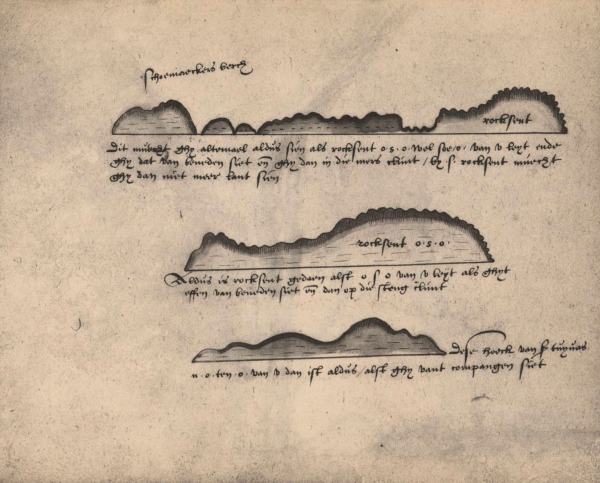 schoemaeckers berch
rocksent
Dit muecht ghy altemael aldus sien als rocksent o·s·o· wel soe·o· van v leyt ende
ghy dat van beneden siet en ghy dan in die mers climt / by s. rocksent muecht
ghy dan niet meer lant sien
rocksent o·s·o·
Aldus is rocksent gedaen alst o s o van v leyt als ghyt
effen van beneden siet en dan op die steng climt
Dese hoeck van
n·o·ten·o· van v dan ist aldus / alst ghy vant compangen siet